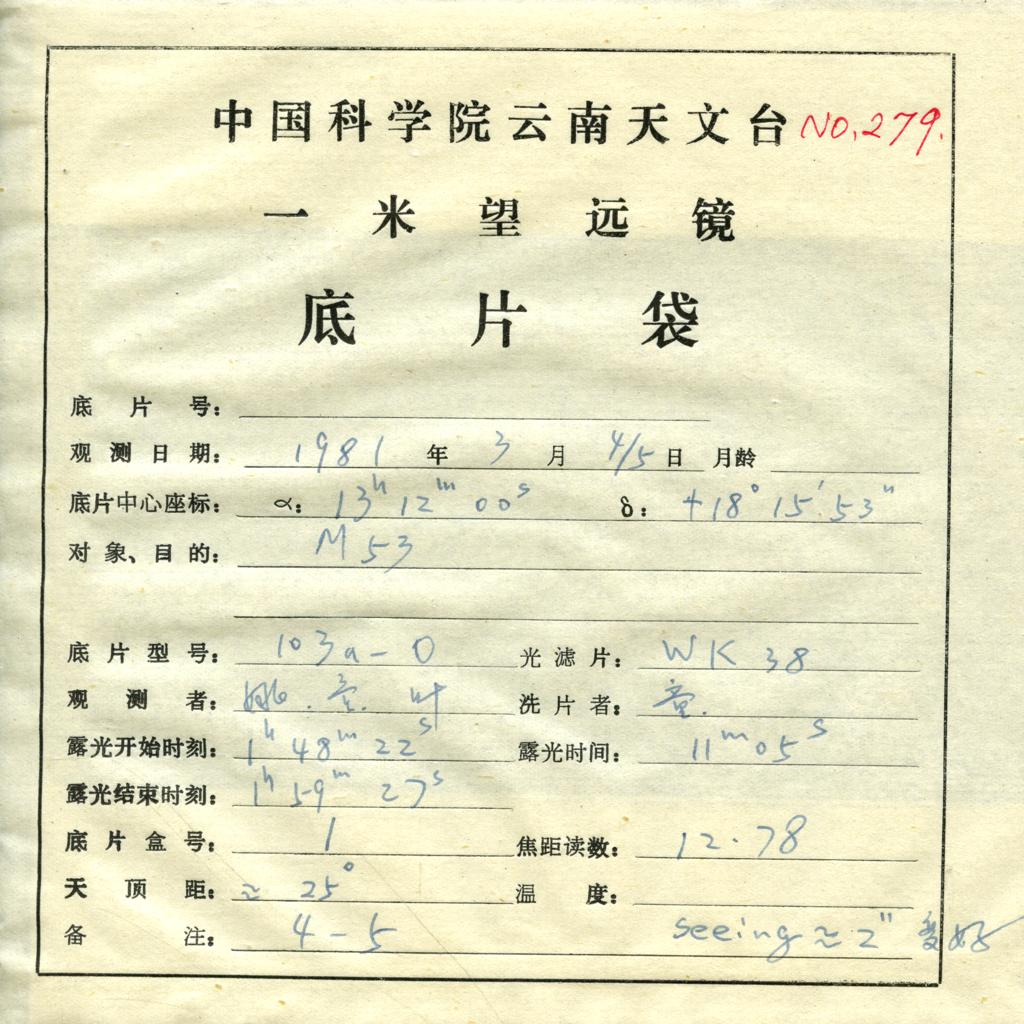 中国科学院云南天文台 NO.279.
一米望远镜
底片袋
底片号：
观测日期：1981年3月4/5日 月龄
底片中心座标：α：13h12m00s δ：+18°15′53″
对象、目的：M53
底片型号：103a-O 光滤片：WK 38
观测者：姚.童.叶 洗片者：童.
露光开始时刻：1h48m22s 露光时间：11m05s
露光结束时刻：1h59m27s
底片盒号：1 焦距读数：12.78
天顶距：≈25° 温度：
备注：4-5 seeing≈2″ 好